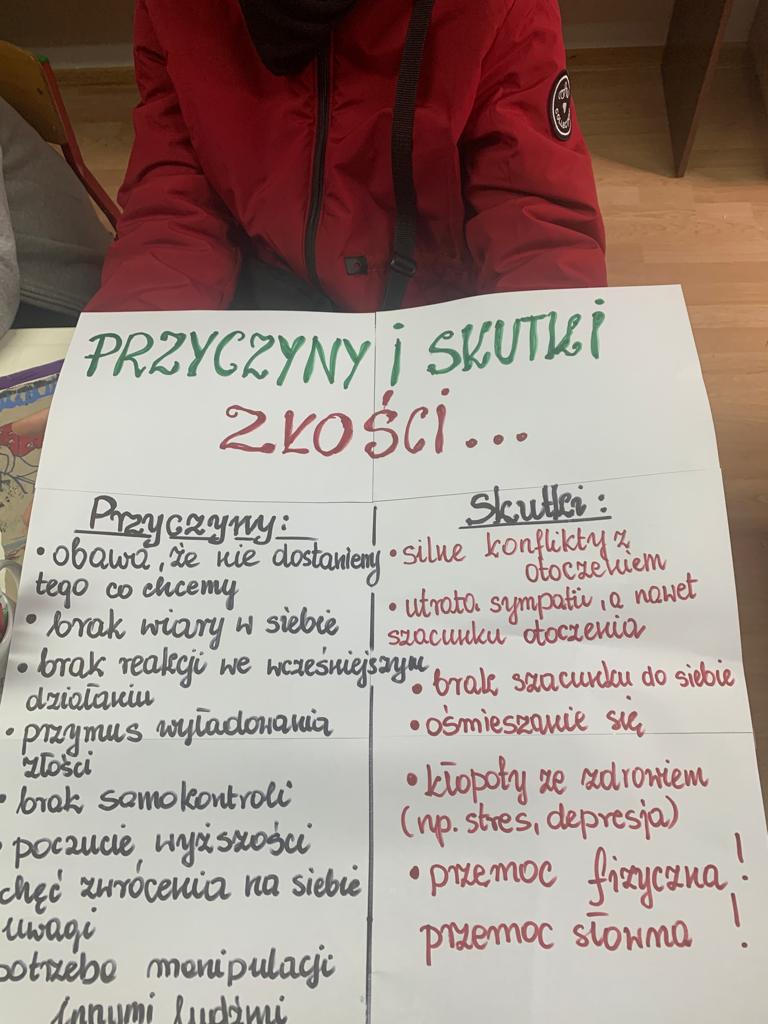 PRZYCZYNY i SKUTKI
ZŁOŚCI...
Przyczyny:
• obawa, że nie dostaniemy
tego co chcemy
• brak wiary w siebie
• brak reakcji we wcześniejszym
działaniu
• przymus wyładowania
złości
• brak samokontroli
• poczucie wyższości
chęć zwrócenia na siebie
uwagi
potrzeba manipulacji
innymi ludźmi
Skutki:
• silne konflikty z
otoczeniem
• utrata sympatii, a nawet
szacunku otoczenia
• brak szacunku do siebie
• ośmieszanie się
• kłopoty ze zdrowiem
(np. stres, depresja)
• przemoc fizyczna!
przemoc słowna!